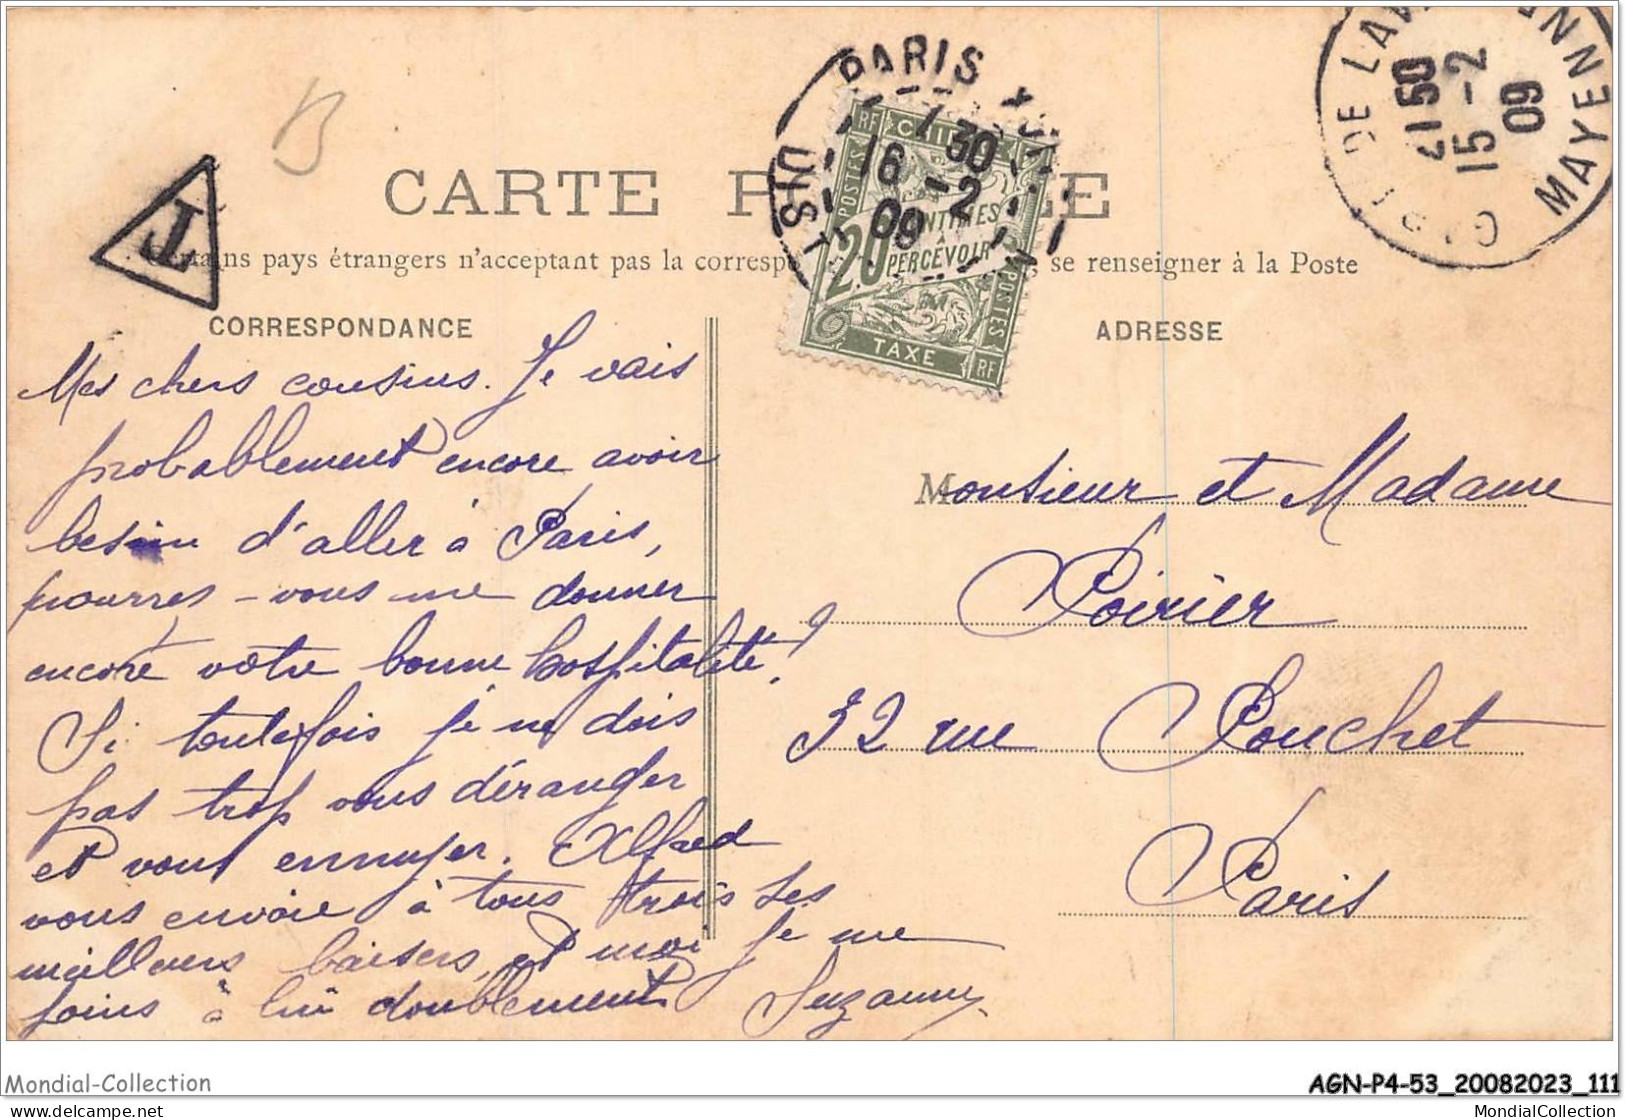 CARTE P E
T
tains pays étrangers n'acceptant pas la corresp se renseigner à la Poste
CORRESPONDANCE
ADRESSE
PARIS
DIST
7 30
16 - 2
09
RF
CHIF
POSTES
20
CENTIMES
A
PERCEVOIR
POSTES
TAXE
RF
DE LAV
MAYENNE
21 50
15 - 2
09
Mes chers cousins. Je vais
probablement encore avoir
besoin d'aller à Paris,
pourres-vous me donner
encore votre bonne hospitalité?
Si toutefois je ne dois
pas trop vous déranger
et vous ennuyer. Alfred
vous envoie à tous trois ses
meilleurs baisers, et moi je me
joins à lui doublement Suzanne
Monsieur et Madame
Poirier
32 rue Pouchet
Paris
Mondial-Collection
AGN-P4-53_20082023_111
www.delcampe.net
MondialCollection